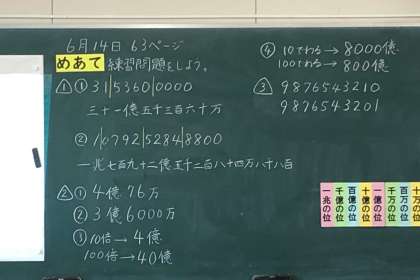 6月14日 63ページ
めあて 練習問題をしよう。
1 ① 31|5360|0000
三十一億五千三百六十万
② 1|0792|5284|8800
一兆七百九十二億五千二百八十四万八千八百
2 ① 4億76万
② 3億6000万
③ 10倍→4億
100倍→40億
④ 10でわる→8000億
100でわる→800億
3 9876543210
9876543201
一兆の位
千億の位
百億の位
十億の位
一億の位
千万の位
百万の位
十万の位